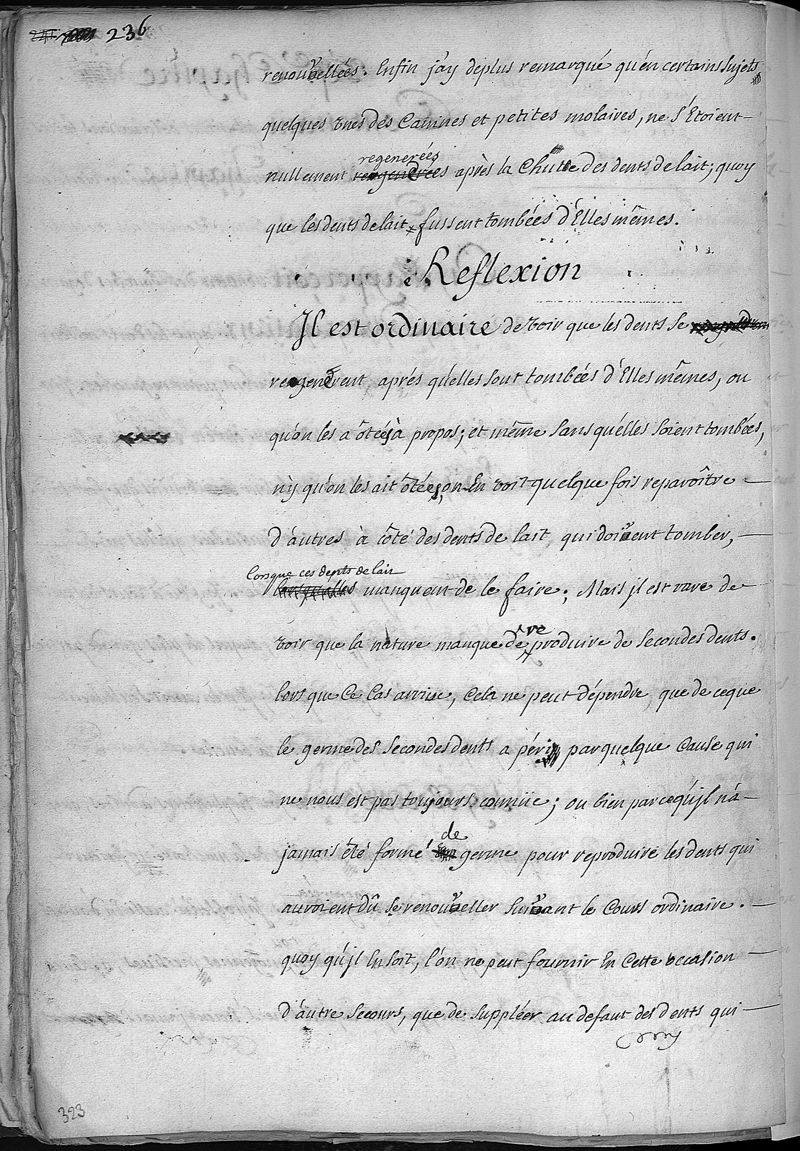 236
renouvellées. Enfin j'ay deplus remarqué qu'en certains Sujets
quelques unes des Canines et petites molaires, ne s'Etoient
nullement regenerées après la Chutte des dents de lait, quoy
que les dents de lait fussent tombées d'Elles mêmes.
Reflexion
Il est ordinaire de voir que les dents se
regenerent aprés qu'elles sont tombées d'Elles mêmes, ou
qu'on les a ôtées à propos; et même sans qu'elles soient tombées,
ny qu'on les ait ôtées, on En voit quelque fois reparoître
d'autres à côté des dents de lait, qui doivent tomber,
lorsque ces dents de lait
manquent de le faire; Mais jl est rare de
voir que la nature manque de reproduire de secondes dents.
lors que Ce Cas arrive, Cela ne peut dépendre que de ceque
le germe des secondes dents a péri par quelque Cause qui
ne nous est pas toujours connüe; ou bien parcequ'jl n'a
jamais été formé de germe pour reproduire les dents qui
auroient dû se renouveller suivant le Cours ordinaire.
quoy qu'jl En soit, l'on ne peut fournir En cette occasion
d'autre secours, que de suppléer au defaut des dents qui
323